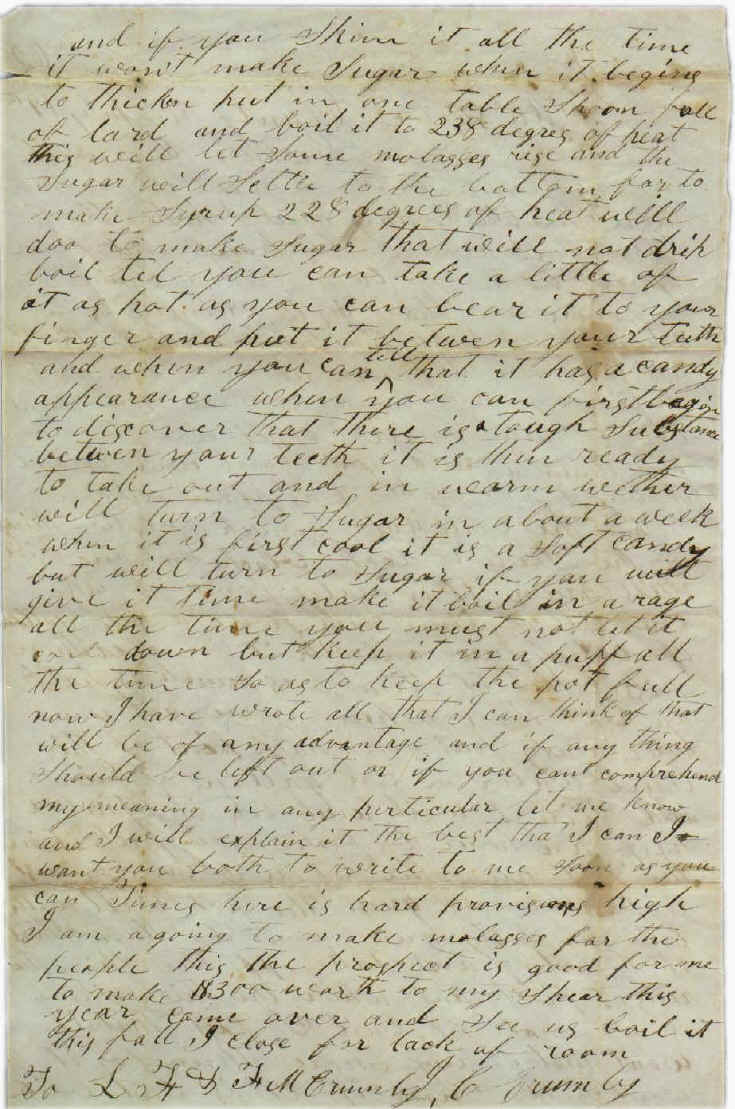 and if you skim it all the time
it wont make Sugar when it begins
to thicken put in one table Spoon full
of lard and boil it to 238 degres of heat
this will let Some molasses rise and the
Sugar will Settle to the bottom for to
make Syrup 228 degrees of heat will
doo to make Sugar that will not drip
boil tel you can take a little of
it as hot as you can bear it to your
finger and put it betwen your teeth
and when you can tell that it has a candy
appearance when you can first begin
to discover that there is a tough Substance
betwen your teeth it is then ready
to take out and in warm wether
will turn to Sugar in about a week
when it is first cool it is a Soft candy
but will turn to Sugar if you will
give it time make it boil in a rage
all the time you must not let it
down but keep it in a puff all
the time So as to keep the pot full
now I have wrote all that I can think of that
will be of any advantage and if any thing
Should be left out or if you cant comprehend
my meaning in any perticular let me know
and I will explain it the best that I can I
want you both to write to me Soon as you
can Times here is hard provisions high
I am agoing to make molasses for the
people this the prospect is good for me
to make $300 worth to my Shear this
year come over and See us boil it
this fall I close for lack of room
To L F D F M Crumly, C Crumly